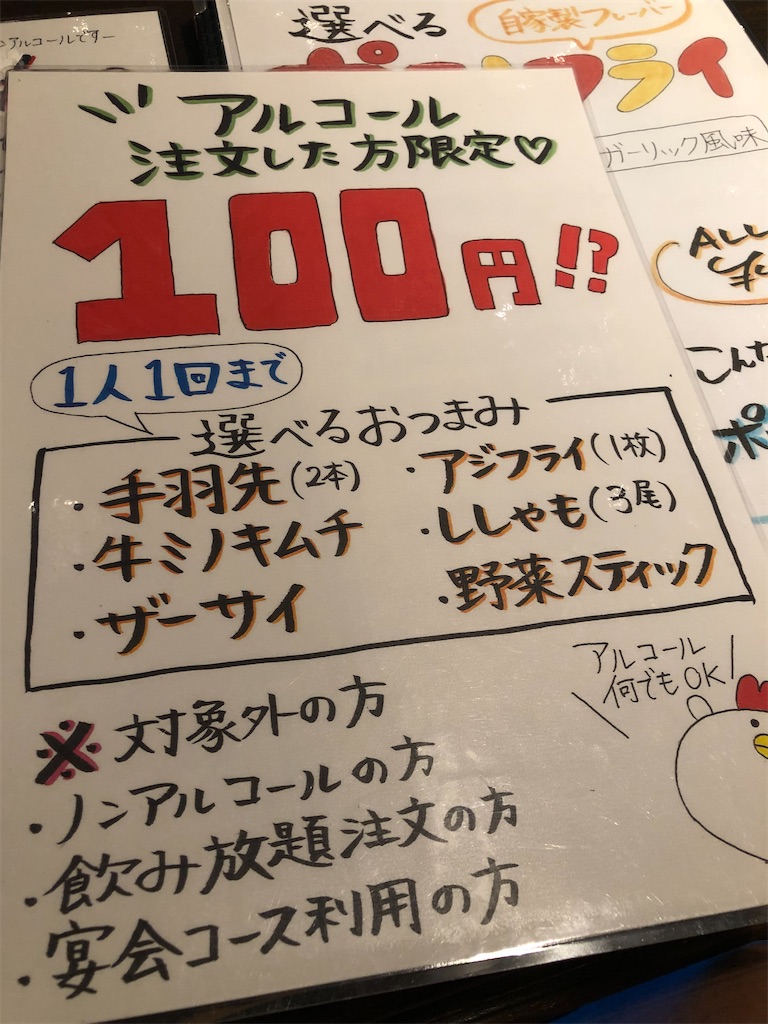 ンアルコールですー
選べる
自家製フレーバー
フライ
ガーリック風味
ALL
こんな
ポ
アルコール
注文した方限定♡
100円!?
1人1回まで
選べるおつまみ
・手羽先(2本)
・アジフライ(1枚)
・牛ミノキムチ
・ししゃも(3尾)
・ザーサイ
・野菜スティック
アルコール
何でもOK!
※対象外の方
・ノンアルコールの方
・飲み放題注文の方
・宴会コース利用の方